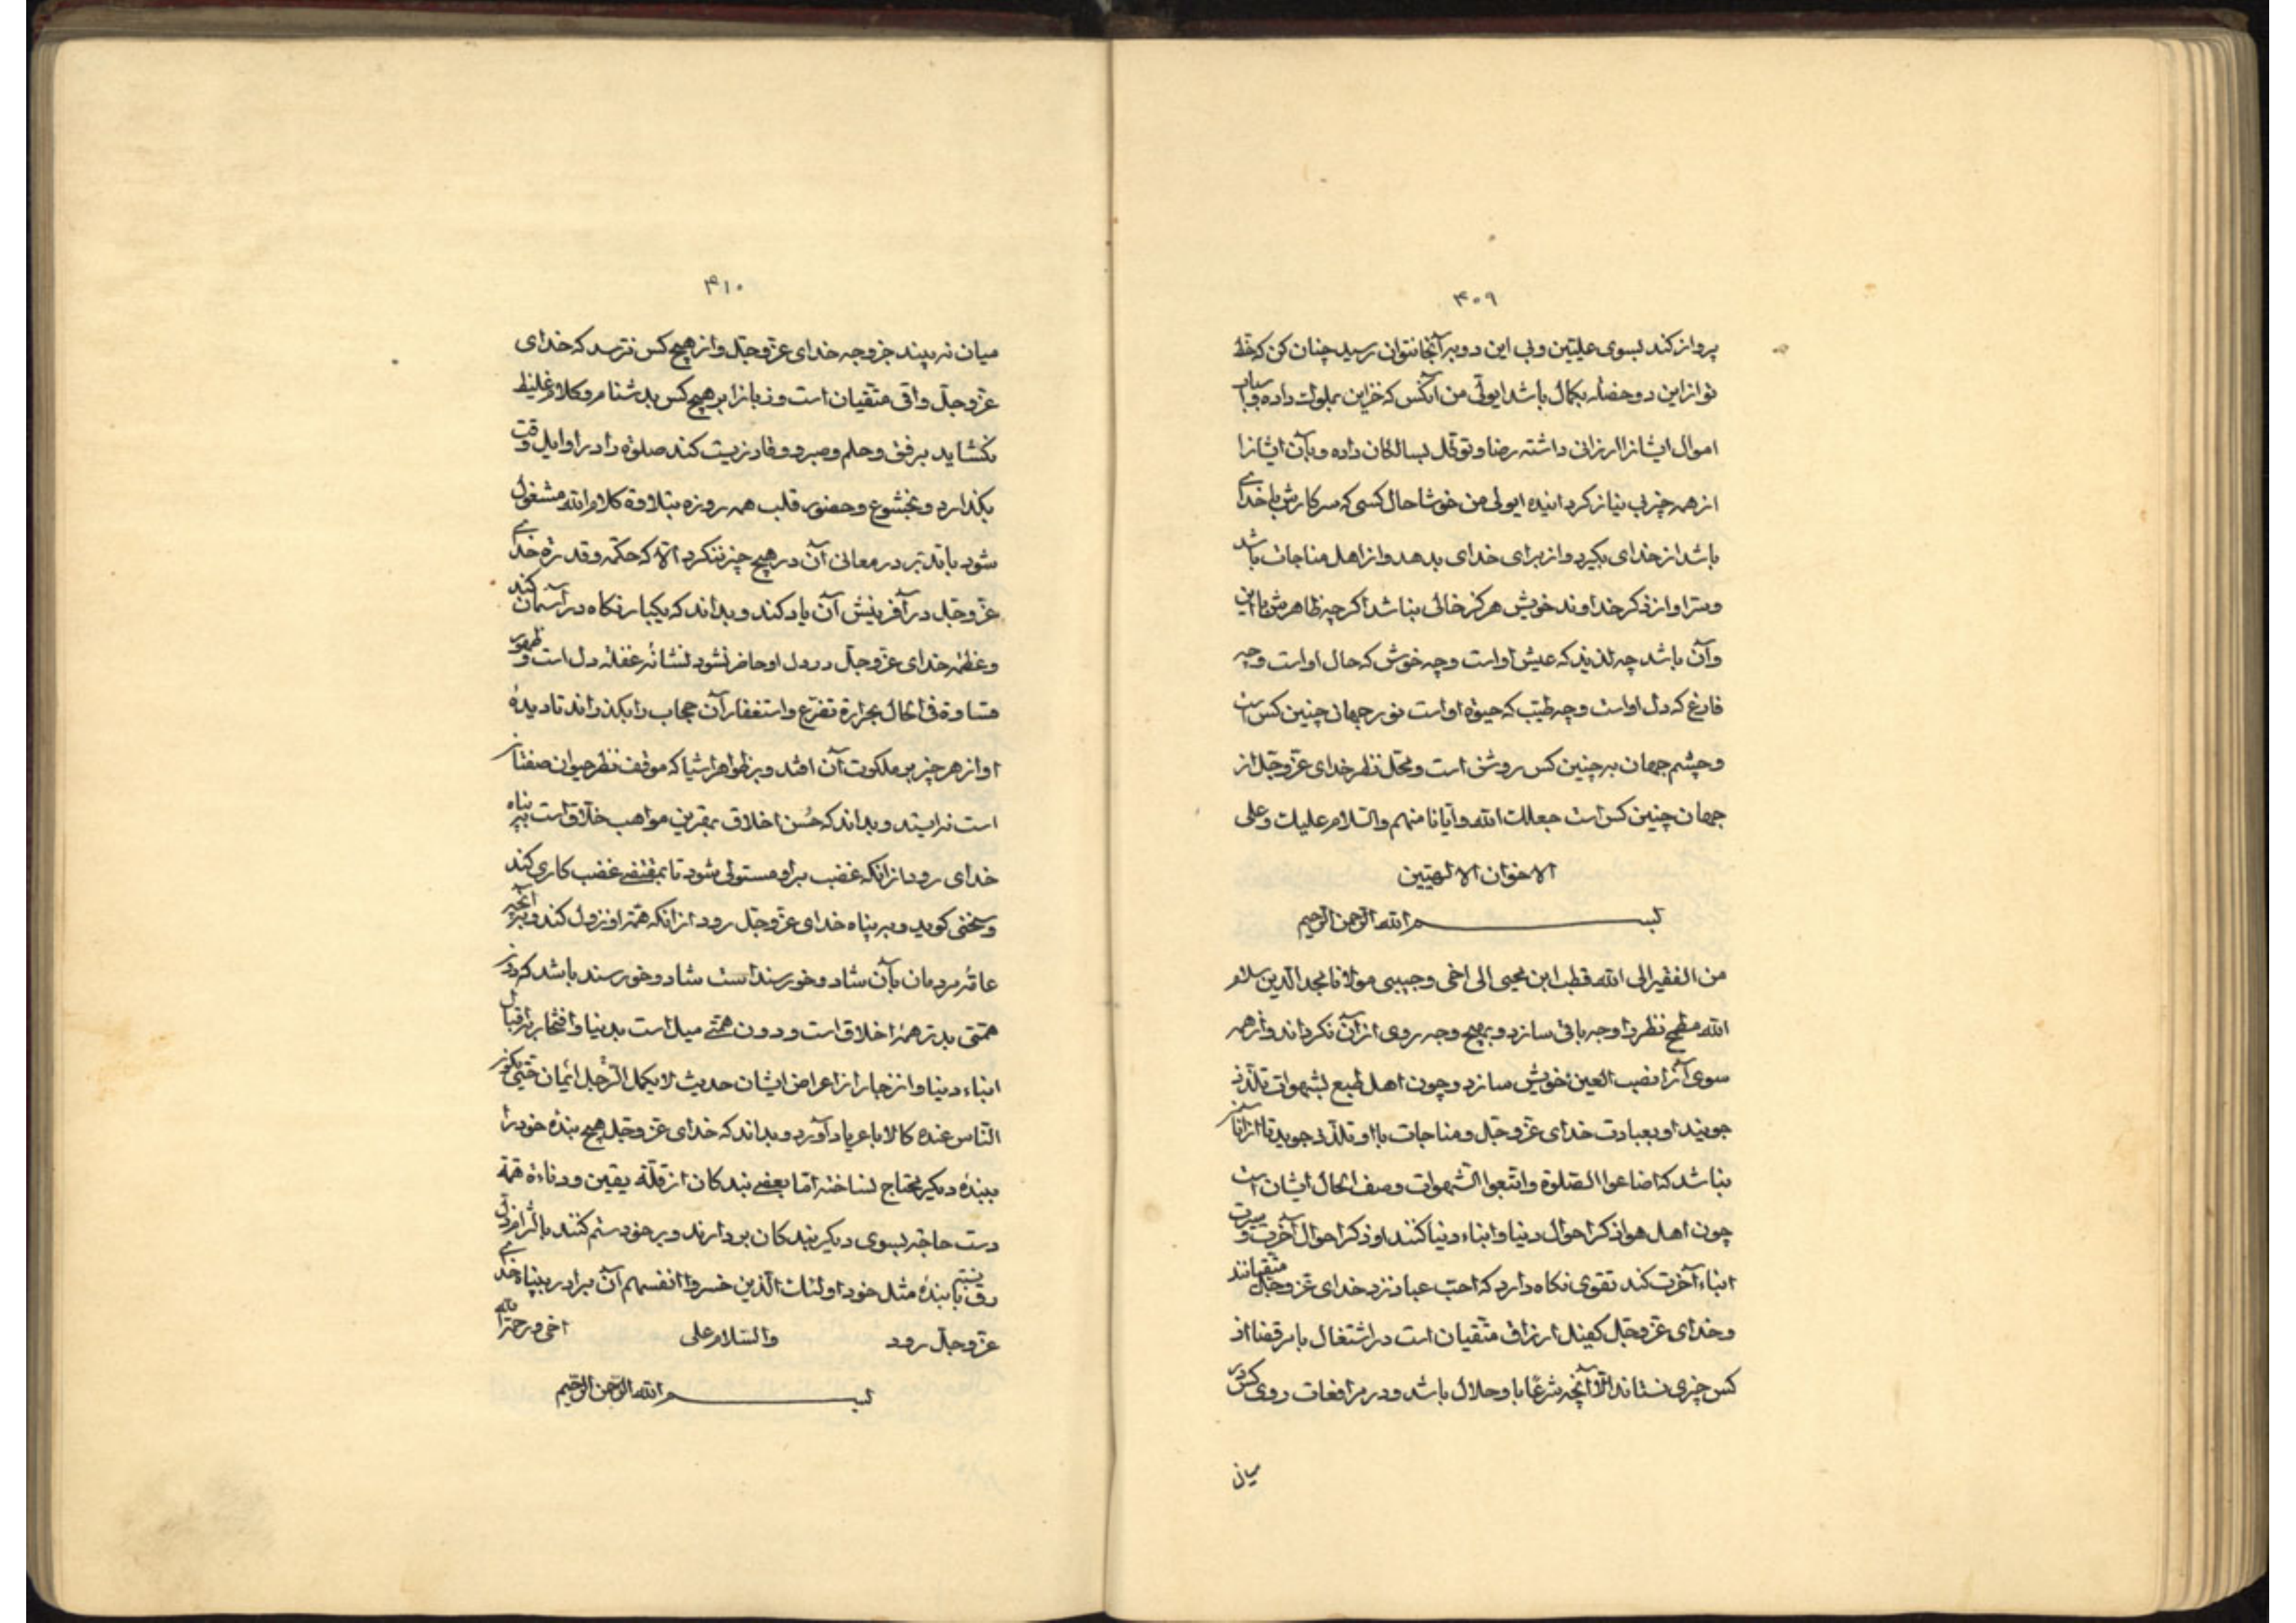 ۴۰۹
پرواز کند بسوی علیّین و بی این دو پر آنجا نتوان رسید چنان کن که حظّ
تو از این دو خصله بکمال باشد ایولّی من آنکس که خزاین بملوک داده و باب
اموال ایشانرا ارزانی داشته رضا و توکّل بسالکان داده و بآن ایشانرا
از همه چیز بی نیاز کردانیده ایولی من خوشا حال کسی که سر کارش با خدای
باشد از خدای بکیرد و از برای خدای بدهد و از اهل مناجات باشد
و سرّ او از ذکر خداوند خویش هرکز خالی نباشد اکرچه ظاهرش با این
و آن باشد چه لذیذ که عیش او است و چه خوش که حال او است و چه
فارغ که دل او است و چه طیّب که حیوة او است نور جهان چنین کس است
و چشم جهان بر چنین کس روشن است و محلّ نظر خدای عزّ و جلّ از
جهان چنین کس است جعلک الله و ایّانا منهم والسّلام علیک و علی
الاخوان الالهیّین
بسم الله الرّحمن الرّحیم
من الفقیر الی الله قطب ابن محیی الی اخی و حبیبی مولانا مجد الدّین سلام
الله مطمح نظر را وجه باقی سازد و بهیچ وجه روی از آن نکرداند و از همه
سوی آنرا نصب العین خویش سازد و چون اهل طبع بشهوات تلذّذ
جویند او بعبادت خدای عزّ و جلّ و مناجات با او تلذّذ جوید تا از آنان
نباشد که اضاعوا الصّلوة و اتّبعوا الشّهوات وصف الحال ایشان است
چون اهل هوا ذکر احوال دنیا و ابناء دنیا کنند او ذکر احوال آخرت و سیرت
ابناء آخرت کند تقوی نکاه دارد که احبّ عباد نزد خدای عزّ و جلّ متّقیانند
و خدای عزّ و جلّ کفیل ارزاق متّقیان است در اشتغال بامر قضا از
کس چیزی نستاند الّا آنچه شرعًا باو حلال باشد و در مرافعات روی کس در
میان
۴۱۰
میان نه بیند جز وجه خدای عزّ و جلّ و از هیچ کس نترسد که خدای
عزّ و جلّ واقی متّقیان است و زبانرا بر هیچ کس بدشنام و کلام غلیظ
نکشاید برفق و حلم و صبر و وقار زیست کند صلوة را در اوایل وقت
بکذارد و بخشوع و حضور قلب همه روزه بتلاوة کلام الله مشغول
شود با تدبّر در معانی آن در هیچ چیز ننکرد الّا که حکمة و قدرة خدای
عزّ و جلّ در آفرینش آن یاد کند و بداند که یکبار نکاه در آسمان کند
و عظمة خدای عزّ و جلّ در دل او حاضر نشود نشانهٔ غفلة دل است و ظهور
قساوة فی الحال بحرارة تضرّع و استغفار آن حجاب را بکذراند تا دیدهٔ
او از هر چیز بر ملکوت آن افتد و بر ظواهر اشیا که موقف نظر حیوان صفتان
است نه ایستد و بداند که حُسن اخلاق بهترین مواهب خلّاق است به پناه
خدای رود از آنکه غضب بر او مستولی شود تا بمقتضی غضب کاری کند
و سخنی کوید و به پناه خدای عزّ و جلّ رود از آنکه همّة او نزول کند و بر آنچه
عامّهٔ مردمان بآن شاد و خورسند است شاد و خورسند باشد که دون
همّتی بدتر همهٔ اخلاق است و دون همّتی میل است بدنیا و افتخار باقبال
ابناء دنیا و انزجار از اعراض ایشان حدیث لا یکمل الرّجل ایمان حتّی یکون
النّاس عنده کالاباعر یاد آورد و بداند که خدای عزّ و جلّ هیچ بندهٔ خود را
ببندهٔ دیکر محتاج نساخته امّا بعضی بندکان از قلّة یقین و دناءة همّة
دست حاجة بسوی دیکر بندکان بردارند و بر خود ستم کنند
با بندهٔ مثل خود اولئک الّذین خسروا انفسهم آن برادر به پناه خدای
عزّ و جلّ رود والسّلام علی اخی و رحمة الله
بسم الله الرّحمن الرّحیم